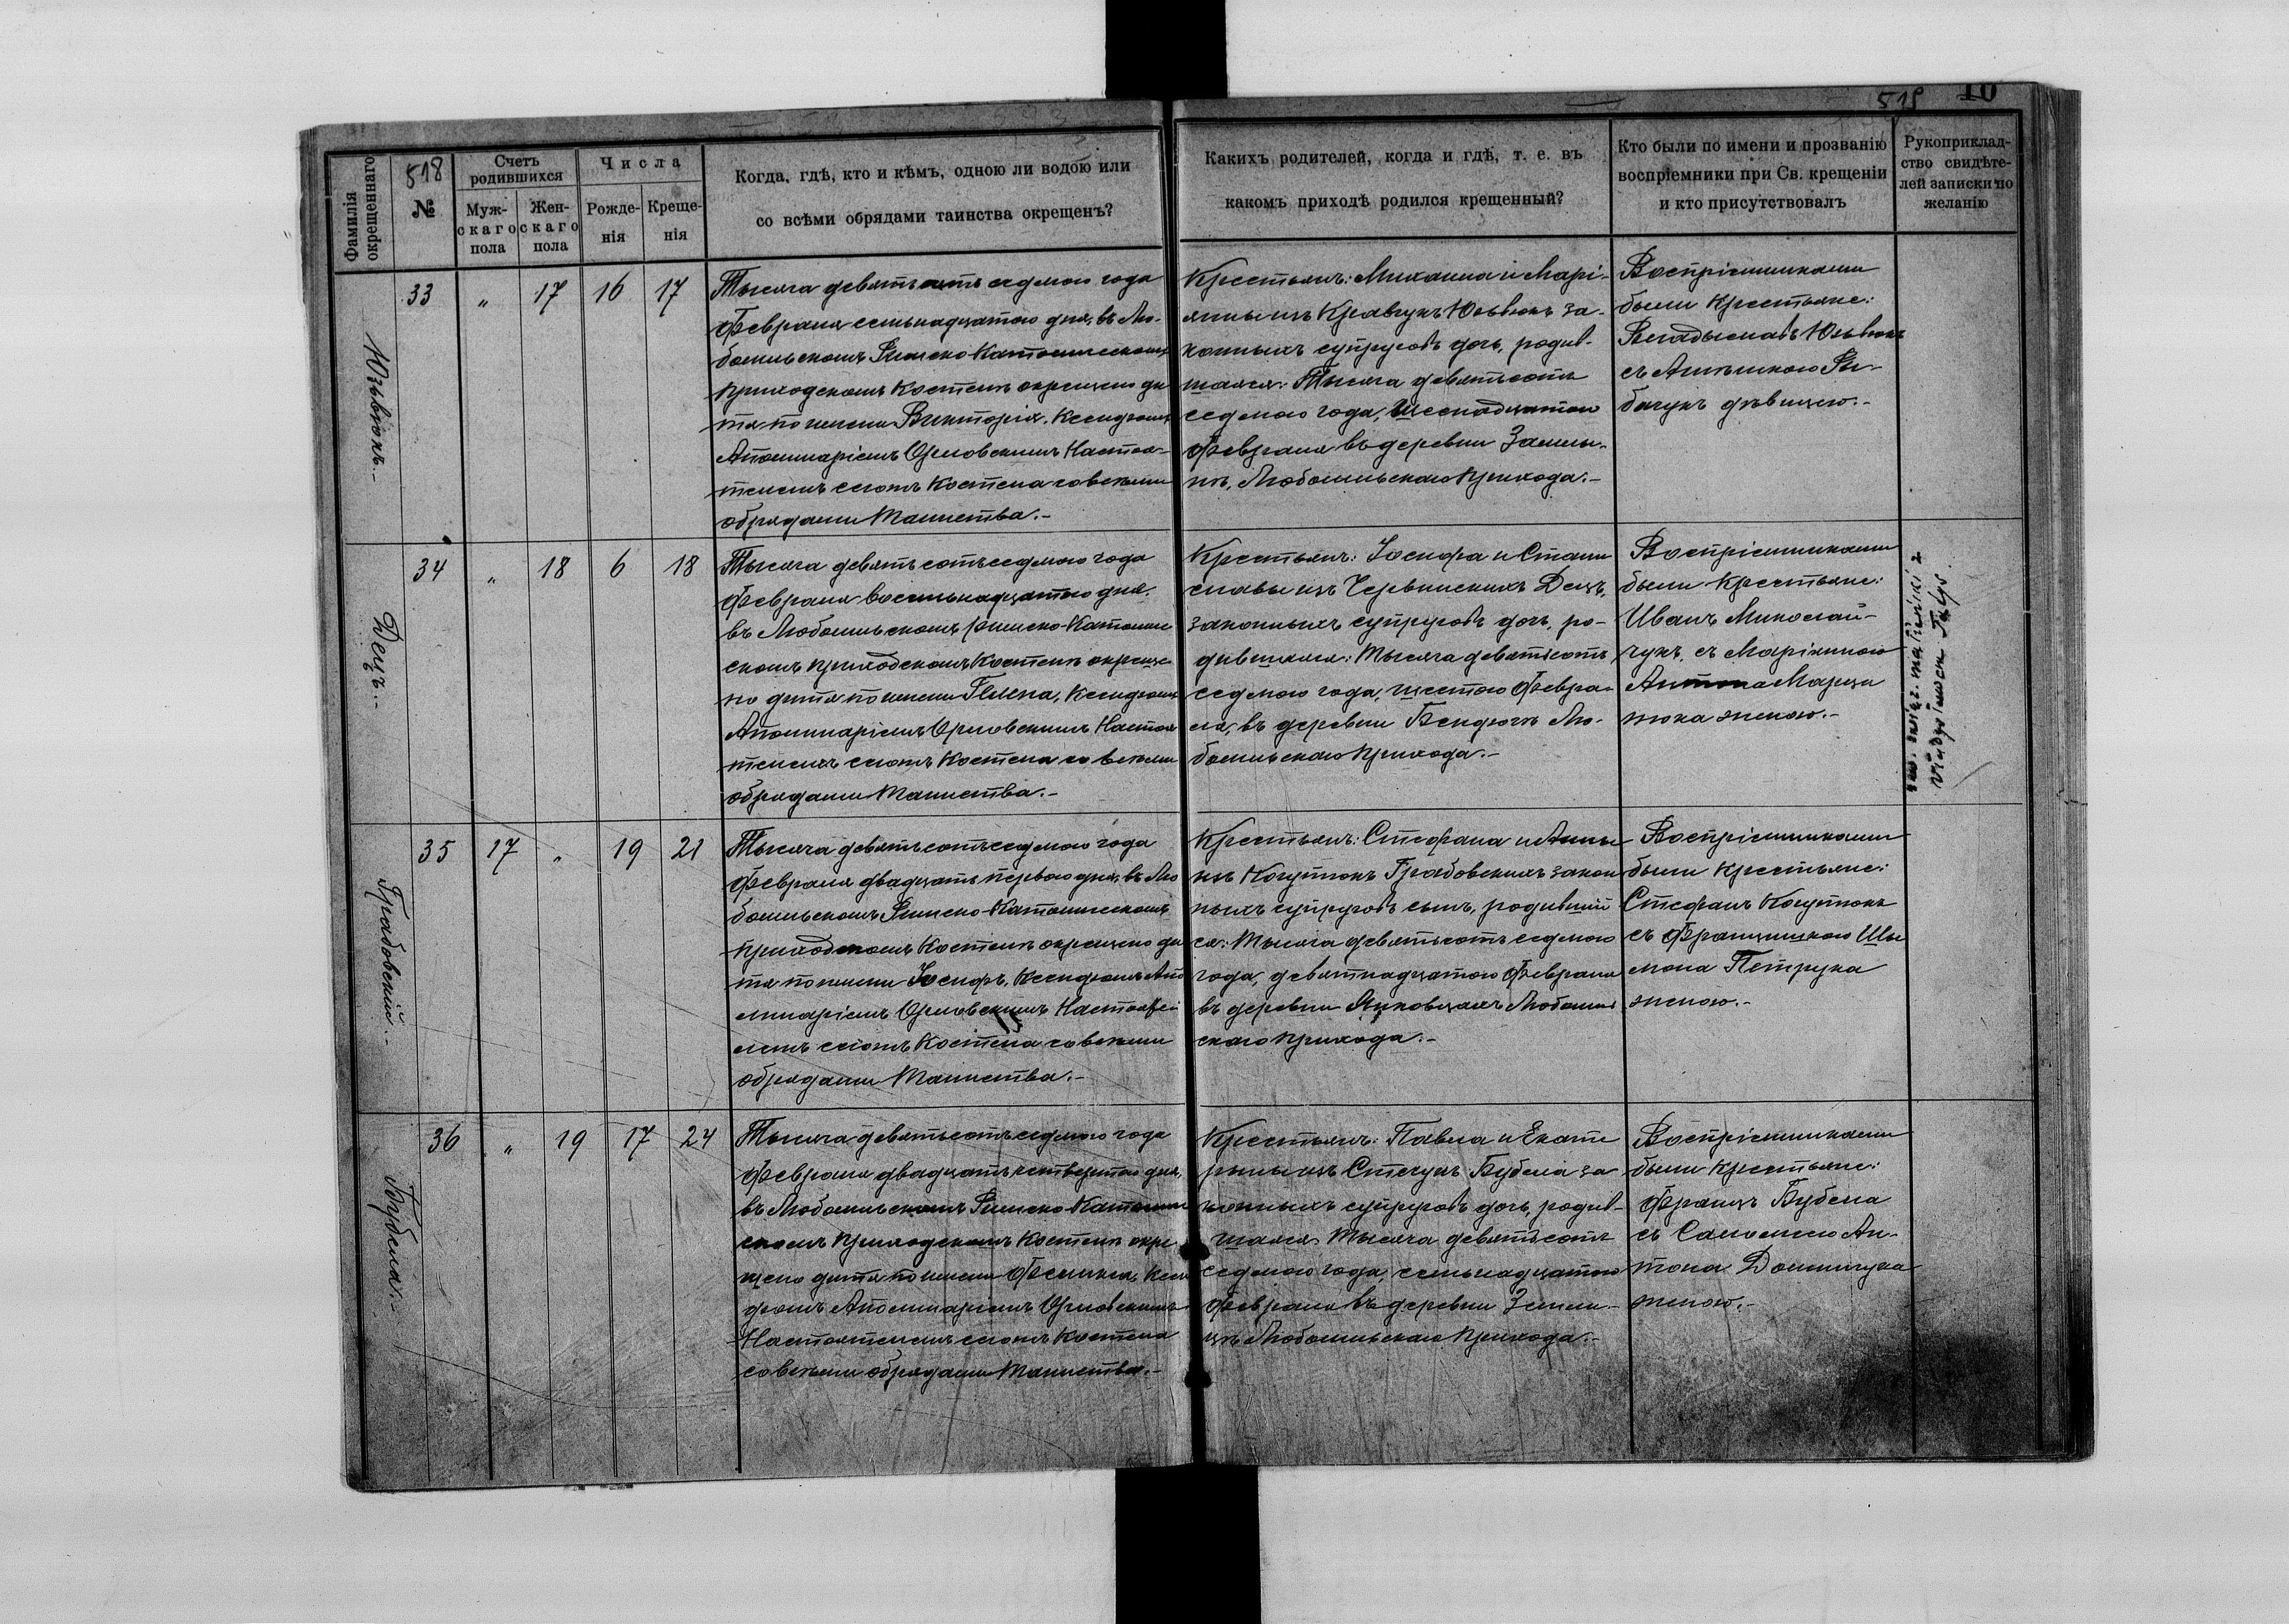 518
519 10
Фамилія окрещеннаго
№
Счетъ родившихся
Мужскаго пола
Женскаго пола
Числа
Рожденія
Крещенія
Когда, гдѣ, кто и кѣмъ, одною ли водою или
со всѣми обрядами таинства окрещенъ?
Какихъ родителей, когда и гдѣ, т. е. въ
какомъ приходѣ родился крещенный?
Кто были по имени и прозванію
воспріемники при Св. крещеніи
и кто присутствовалъ
Рукоприклад-
ство свидѣте-
лей записки по
желанію
Юзьвюкъ.-
33 " 17 16 17
Тысяча девятьсотъ седмого года
Февраля семьнадцатого дня, въ Лю-
бомльскомъ Римско-Католическомъ
приходскомъ Костелѣ окрещено ди
тя по имени Викторія, Ксендзомъ
Аполинаріемъ Орловскимъ Настоя-
телемъ сего Костела со всѣми
обрядами Таинства.-
Крестьянъ: Михаила и Марі-
янны изъ Кравчукъ Юзьвюкъ за-
конныхъ супруговъ дочь, родив-
шаяся: Тысяча девятьсотъ
седмого года, шеснадцатого
Февраля въ деревни Замлы-
нѣ, Любомльскаго прихода.-
Воспріемниками
были крестьяне:
Владыславъ Юзьвюкъ
съ
дѣвицею.-
Децъ.-
34 " 18 6 18
Тысяча девятьсотъ седмого года
Февраля восемьнадцатого дня,
въ Любомльскомъ Римско-Католиче
скомъ приходскомъ Костелѣ окреще-
но дитя по имени Гелена, Ксендзомъ
Аполинаріемъ Орловскимъ Настоя
телемъ сего Костела со всѣми
обрядами Таинства.-
Крестьянъ: Іосифа и Стани
славы изъ Червинскихъ Децъ,
законныхъ супруговъ дочь, ро-
дившаяся: Тысяча девятьсотъ
седмого года, шестого Февра-
ля, въ деревни Бендюгѣ Лю-
бомльскаго прихода.-
Воспріемниками
были крестьяне:
Иванъ Миколай-
чукъ, съ Маріянною
Антона
женою.-
Грабовскій.-
35 17 " 19 21
Тысяча девятьсотъ седмого года
Февраля двадцать первого дня, въ Лю
бомльскомъ Римско-Католическомъ
приходскомъ Костелѣ окрещено ди
тя по имени Іосифъ, Ксендзомъ Апо
линаріемъ Орловскимъ Настояте
лемъ сего Костела со всѣми
обрядами Таинства.-
Крестьянъ: Стефана и Анны
изъ Когутюкъ Грабовскихъ закон
ныхъ супруговъ сынъ, родивший
ся: Тысяча девятьсотъ седмого
года, девятнадцатого Февраля
въ деревни Янковцахъ Любомль
скаго прихода.-
Воспріемниками
были крестьяне:
Стефанъ Когутюкъ
съ Францишкою Шы
мона Петрука
женою.-
Бубела.-
36 " 19 17 24
Тысяча девятьсотъ седмого года
Февраля двадцать четвертого дня,
въ Любомльскомъ Римско-Католиче
скомъ приходскомъ Костелѣ окре-
щено дитя по имени Феликса, Ксен
дзомъ Аполинаріемъ Орловскимъ
Настоятелемъ сего Костела
со всѣми обрядами Таинства.-
Крестьянъ: Павла и Екате
рины изъ Стечукъ Бубела за
конныхъ супруговъ дочь, родив-
шаяся Тысяча девятьсотъ
седмого года, семьнадцатого
Февраля въ деревни Земли-
цѣ Любомльскаго прихода.-
Воспріемниками
были крестьяне:
Францъ Бубела
съ Саломією Ан-
тона Доминчука
женою.-